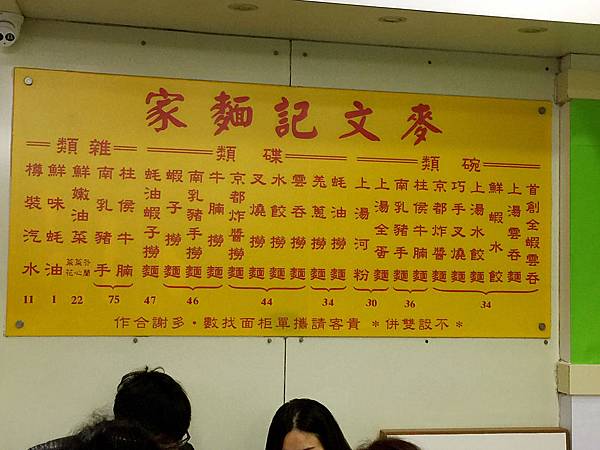 麥文記麵家
碗類
首創全蝦雲吞
上湯雲吞麵
鮮蝦水餃
上湯水餃麵
巧手叉燒麵
京都炸醬麵
34
柱侯牛腩麵
南乳豬手麵
36
上湯全蛋麵
上湯河粉
30
碟類
蚝油撈麵
羌蔥撈麵
34
雲吞撈麵
水餃撈麵
叉燒撈麵
京都炸醬撈麵
44
牛腩撈麵
南乳豬手撈麵
蝦子撈麵
46
蚝油蝦子撈麵
47
雜類
柱侯牛腩
南乳豬手
75
鮮嫩油菜
芥蘭
菜心
22
鮮味蚝油
1
樽裝汽水
11
*不設雙併* 貴客請攜單柜面找數·多謝合作